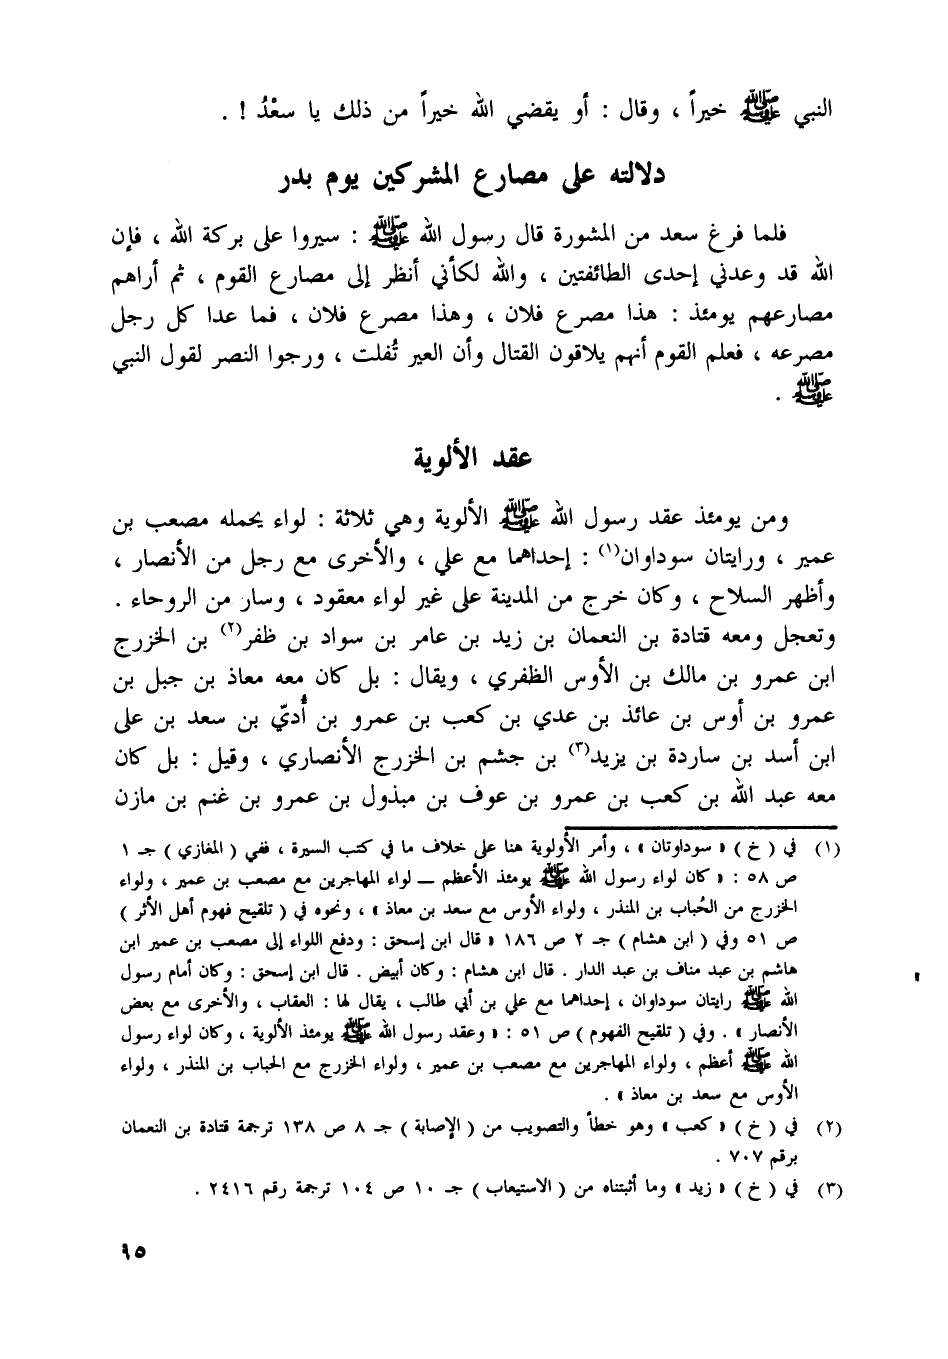 النبي ﷺ خيراً ، وقال : أو يقضي الله خيراً من ذلك يا سعْدُ ! .
دلالته على مصارع المشركين يوم بدر
فلما فرغ سعد من المشورة قال رسول الله ﷺ : سيروا على بركة الله ، فإن
الله قد وعدني إحدى الطائفتين ، والله لكأني أنظر إلى مصارع القوم ، ثم أراهم
مصارعهم يومئذ : هذا مصرع فلان ، وهذا مصرع فلان ، فما عدا كل رجل
مصرعه ، فعلم القوم أنهم يلاقون القتال وأن العير تُفلت ، ورجوا النصر لقول النبي
ﷺ .
عقد الألوية
ومن يومئذ عقد رسول الله ﷺ الألوية وهي ثلاثة : لواء يحمله مصعب بن
عمير ، ورايتان سوداوان(١) : إحداهما مع علي ، والأخرى مع رجل من الأنصار ،
وأظهر السلاح ، وكان خرج من المدينة على غير لواء معقود ، وسار من الروحاء .
وتعجل ومعه قتادة بن النعمان بن زيد بن عامر بن سواد بن ظفر(٢) بن الخزرج
ابن عمرو بن مالك بن الأوس الظفري ، ويقال : بل كان معه معاذ بن جبل بن
عمرو بن أوس بن عائذ بن عدي بن كعب بن عمرو بن أُديّ بن سعد بن على
ابن أسد بن ساردة بن يزيد(٣) بن جشم بن الخزرج الأنصاري ، وقيل : بل كان
معه عبد الله بن كعب بن عمرو بن عوف بن مبذول بن عمرو بن غنم بن مازن
(١) في ( خ ) « سوداوتان » ، وأمر الأولوية هنا على خلاف ما في كتب السيرة ، ففي ( المغازي ) جـ ١
ص ٥٨ : « كان لواء رسول الله ﷺ يومئذ الأعظم ــ لواء المهاجرين مع مصعب بن عمير ، ولواء
الخزرج من الحُباب بن المنذر ، ولواء الأوس مع سعد بن معاذ » ، ونحوه في ( تلقيح فهوم أهل الأثر )
ص ٥١ وفي ( ابن هشام ) جـ ٢ ص ١٨٦ « قال ابن إسحق : ودفع اللواء إلى مصعب بن عمير ابن
هاشم بن عبد مناف بن عبد الدار . قال ابن هشام : وكان أبيض . قال ابن إسحق : وكان أمام رسول
الله ﷺ رايتان سوداوان ، إحداهما مع علي بن أبي طالب ، يقال لها : العقاب ، والأخرى مع بعض
الأنصار » . وفي ( تلقيح الفهوم ) ص ٥١ : « وعقد رسول الله ﷺ يومئذ الألوية ، وكان لواء رسول
الله ﷺ أعظم ، ولواء المهاجرين مع مصعب بن عمير ، ولواء الخزرج مع الحباب بن المنذر ، ولواء
الأوس مع سعد بن معاذ » .
(٢) في ( خ ) « كعب » وهو خطأ والتصويب من ( الإصابة ) جـ ٨ ص ١٣٨ ترجمة قتادة بن النعمان
برقم ٧٠٧ .
(٣) في ( خ ) « زيد » وما أثبتناه من ( الاستيعاب ) جـ ١٠ ص ١٠٤ ترجمة رقم ٢٤١٦ .
٩٥